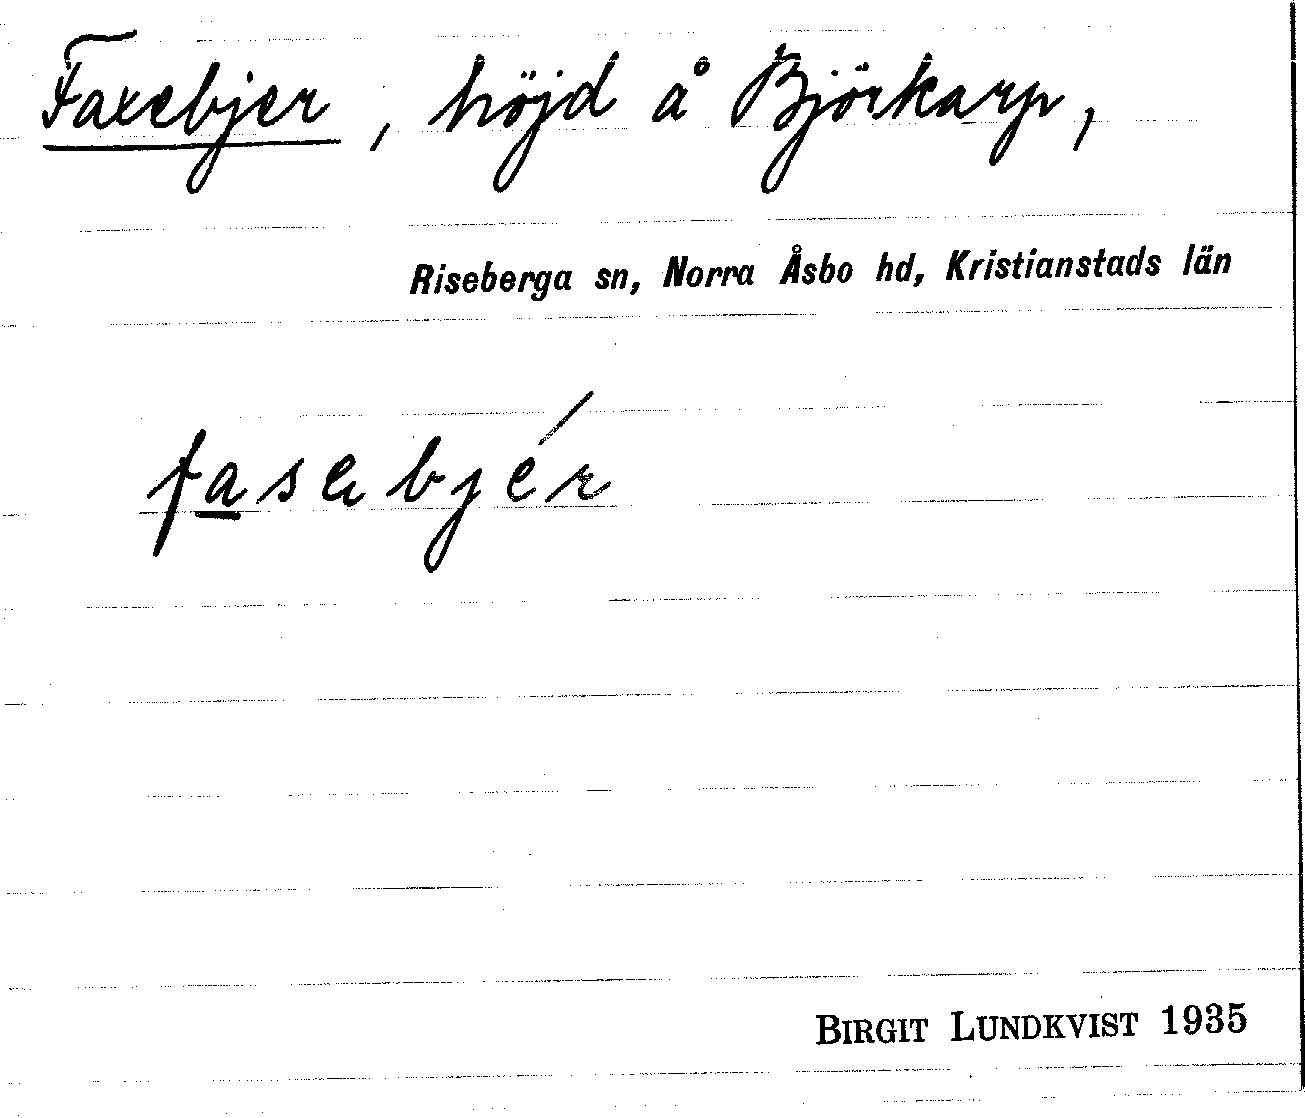 Faxebjer, höjd å Björkarp,
Riseberga sn, Norra Åsbo hd, Kristianstads län
fasabjér
BIRGIT LUNDKVIST 1935